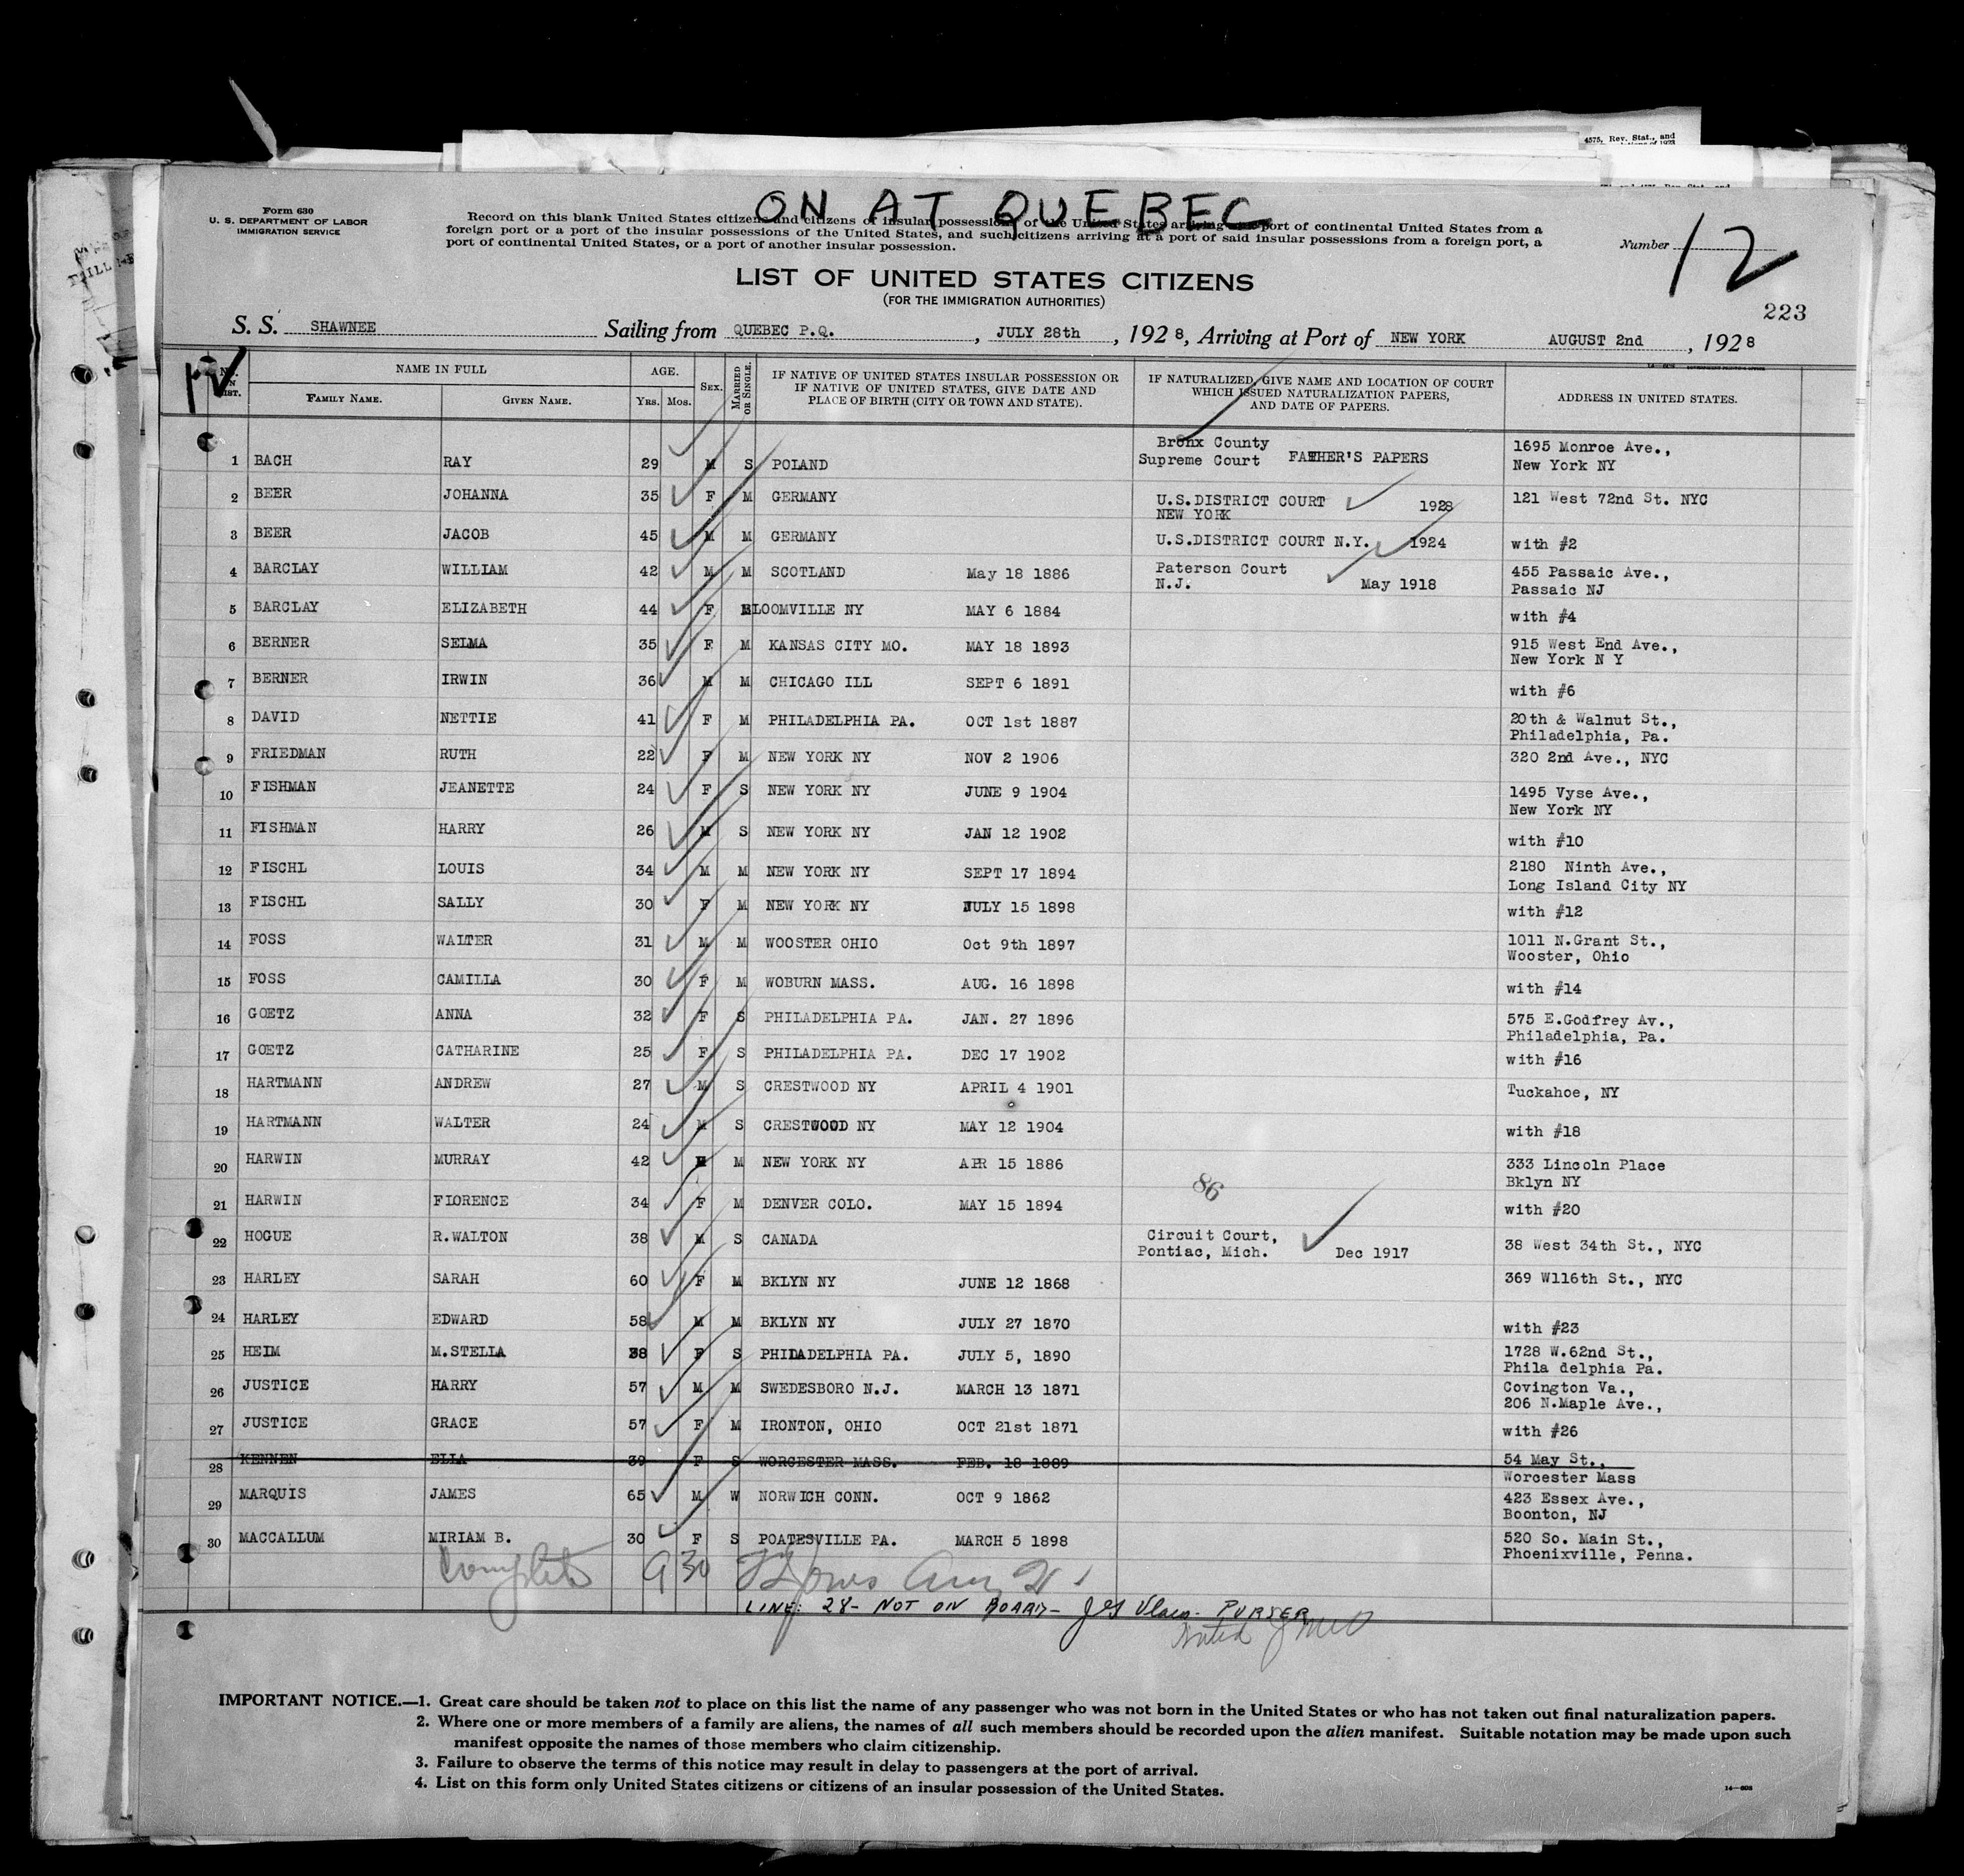 4575, Rev. Stat., and
ON AT QUEBEC
Form 630
U. S. DEPARTMENT OF LABOR
IMMIGRATION SERVICE
Record on this blank United States citizens and citizens of insular possessions of the United States arriving at a port of continental United States from a
foreign port or a port of the insular possessions of the United States, and such citizens arriving at a port of said insular possessions from a foreign port, a
port of continental United States, or a port of another insular possession.
Number 12
LIST OF UNITED STATES CITIZENS
(FOR THE IMMIGRATION AUTHORITIES)
223
S. S. SHAWNEE Sailing from QUEBEC P.Q. , JULY 28th , 1928, Arriving at Port of NEW YORK AUGUST 2nd , 1928
NO. ON LIST. NAME IN FULL AGE. SEX. MARRIED OR SINGLE. IF NATIVE OF UNITED STATES INSULAR POSSESSION OR IF NATIVE OF UNITED STATES, GIVE DATE AND PLACE OF BIRTH (CITY OR TOWN AND STATE). IF NATURALIZED, GIVE NAME AND LOCATION OF COURT WHICH ISSUED NATURALIZATION PAPERS, AND DATE OF PAPERS. ADDRESS IN UNITED STATES.
FAMILY NAME. GIVEN NAME. YRS. MOS.
1 BACH RAY 29 M S POLAND Bronx County Supreme Court FATHER'S PAPERS 1695 Monroe Ave., New York NY
2 BEER JOHANNA 35 F M GERMANY U.S.DISTRICT COURT NEW YORK 1928 121 West 72nd St. NYC
3 BEER JACOB 45 M M GERMANY U.S.DISTRICT COURT N.Y. 1924 with #2
4 BARCLAY WILLIAM 42 M M SCOTLAND May 18 1886 Paterson Court N.J. May 1918 455 Passaic Ave., Passaic NJ
5 BARCLAY ELIZABETH 44 F BLOOMVILLE NY MAY 6 1884 with #4
6 BERNER SELMA 35 F M KANSAS CITY MO. MAY 18 1893 915 West End Ave., New York N Y
7 BERNER IRWIN 36 M M CHICAGO ILL SEPT 6 1891 with #6
8 DAVID NETTIE 41 F M PHILADELPHIA PA. OCT 1st 1887 20th & Walnut St., Philadelphia, Pa.
9 FRIEDMAN RUTH 22 F M NEW YORK NY NOV 2 1906 320 2nd Ave., NYC
10 FISHMAN JEANETTE 24 F S NEW YORK NY JUNE 9 1904 1495 Vyse Ave., New York NY
11 FISHMAN HARRY 26 M S NEW YORK NY JAN 12 1902 with #10
12 FISCHL LOUIS 34 M M NEW YORK NY SEPT 17 1894 2180 Ninth Ave., Long Island City NY
13 FISCHL SALLY 30 F M NEW YORK NY JULY 15 1898 with #12
14 FOSS WALTER 31 M M WOOSTER OHIO Oct 9th 1897 1011 N.Grant St., Wooster, Ohio
15 FOSS CAMILLA 30 F M WOBURN MASS. AUG. 16 1898 with #14
16 GOETZ ANNA 32 F S PHILADELPHIA PA. JAN. 27 1896 575 E.Godfrey Av., Philadelphia, Pa.
17 GOETZ CATHARINE 25 F S PHILADELPHIA PA. DEC 17 1902 with #16
18 HARTMANN ANDREW 27 M S CRESTWOOD NY APRIL 4 1901 Tuckahoe, NY
19 HARTMANN WALTER 24 M S CRESTWOOD NY MAY 12 1904 with #18
20 HARWIN MURRAY 42 M M NEW YORK NY APR 15 1886 333 Lincoln Place Bklyn NY
86
21 HARWIN FLORENCE 34 F M DENVER COLO. MAY 15 1894 with #20
22 HOGUE R.WALTON 38 M S CANADA Circuit Court, Pontiac, Mich. Dec 1917 38 West 34th St., NYC
23 HARLEY SARAH 60 F M BKLYN NY JUNE 12 1868 369 W116th St., NYC
24 HARLEY EDWARD 58 M M BKLYN NY JULY 27 1870 with #23
25 HEIM M.STELLA 38 F S PHILADELPHIA PA. JULY 5, 1890 1728 W.62nd St., Phila delphia Pa.
26 JUSTICE HARRY 57 M M SWEDESBORO N.J. MARCH 13 1871 Covington Va., 206 N.Maple Ave.,
27 JUSTICE GRACE 57 F M IRONTON, OHIO OCT 21st 1871 with #26
28 KENNEN ELLA 39 F S WORCESTER MASS. FEB. 18 1889 54 May St., Worcester Mass
29 MARQUIS JAMES 65 M W NORWICH CONN. OCT 9 1862 423 Essex Ave., Boonton, NJ
30 MACCALLUM MIRIAM B. 30 F S POATESVILLE PA. MARCH 5 1898 520 So. Main St., Phoenixville, Penna.
Complete 9 30
LINE: 28- NOT ON BOARD- PURSER
Noted
IMPORTANT NOTICE.—1. Great care should be taken not to place on this list the name of any passenger who was not born in the United States or who has not taken out final naturalization papers.
2. Where one or more members of a family are aliens, the names of all such members should be recorded upon the alien manifest. Suitable notation may be made upon such
manifest opposite the names of those members who claim citizenship.
3. Failure to observe the terms of this notice may result in delay to passengers at the port of arrival.
4. List on this form only United States citizens or citizens of an insular possession of the United States.